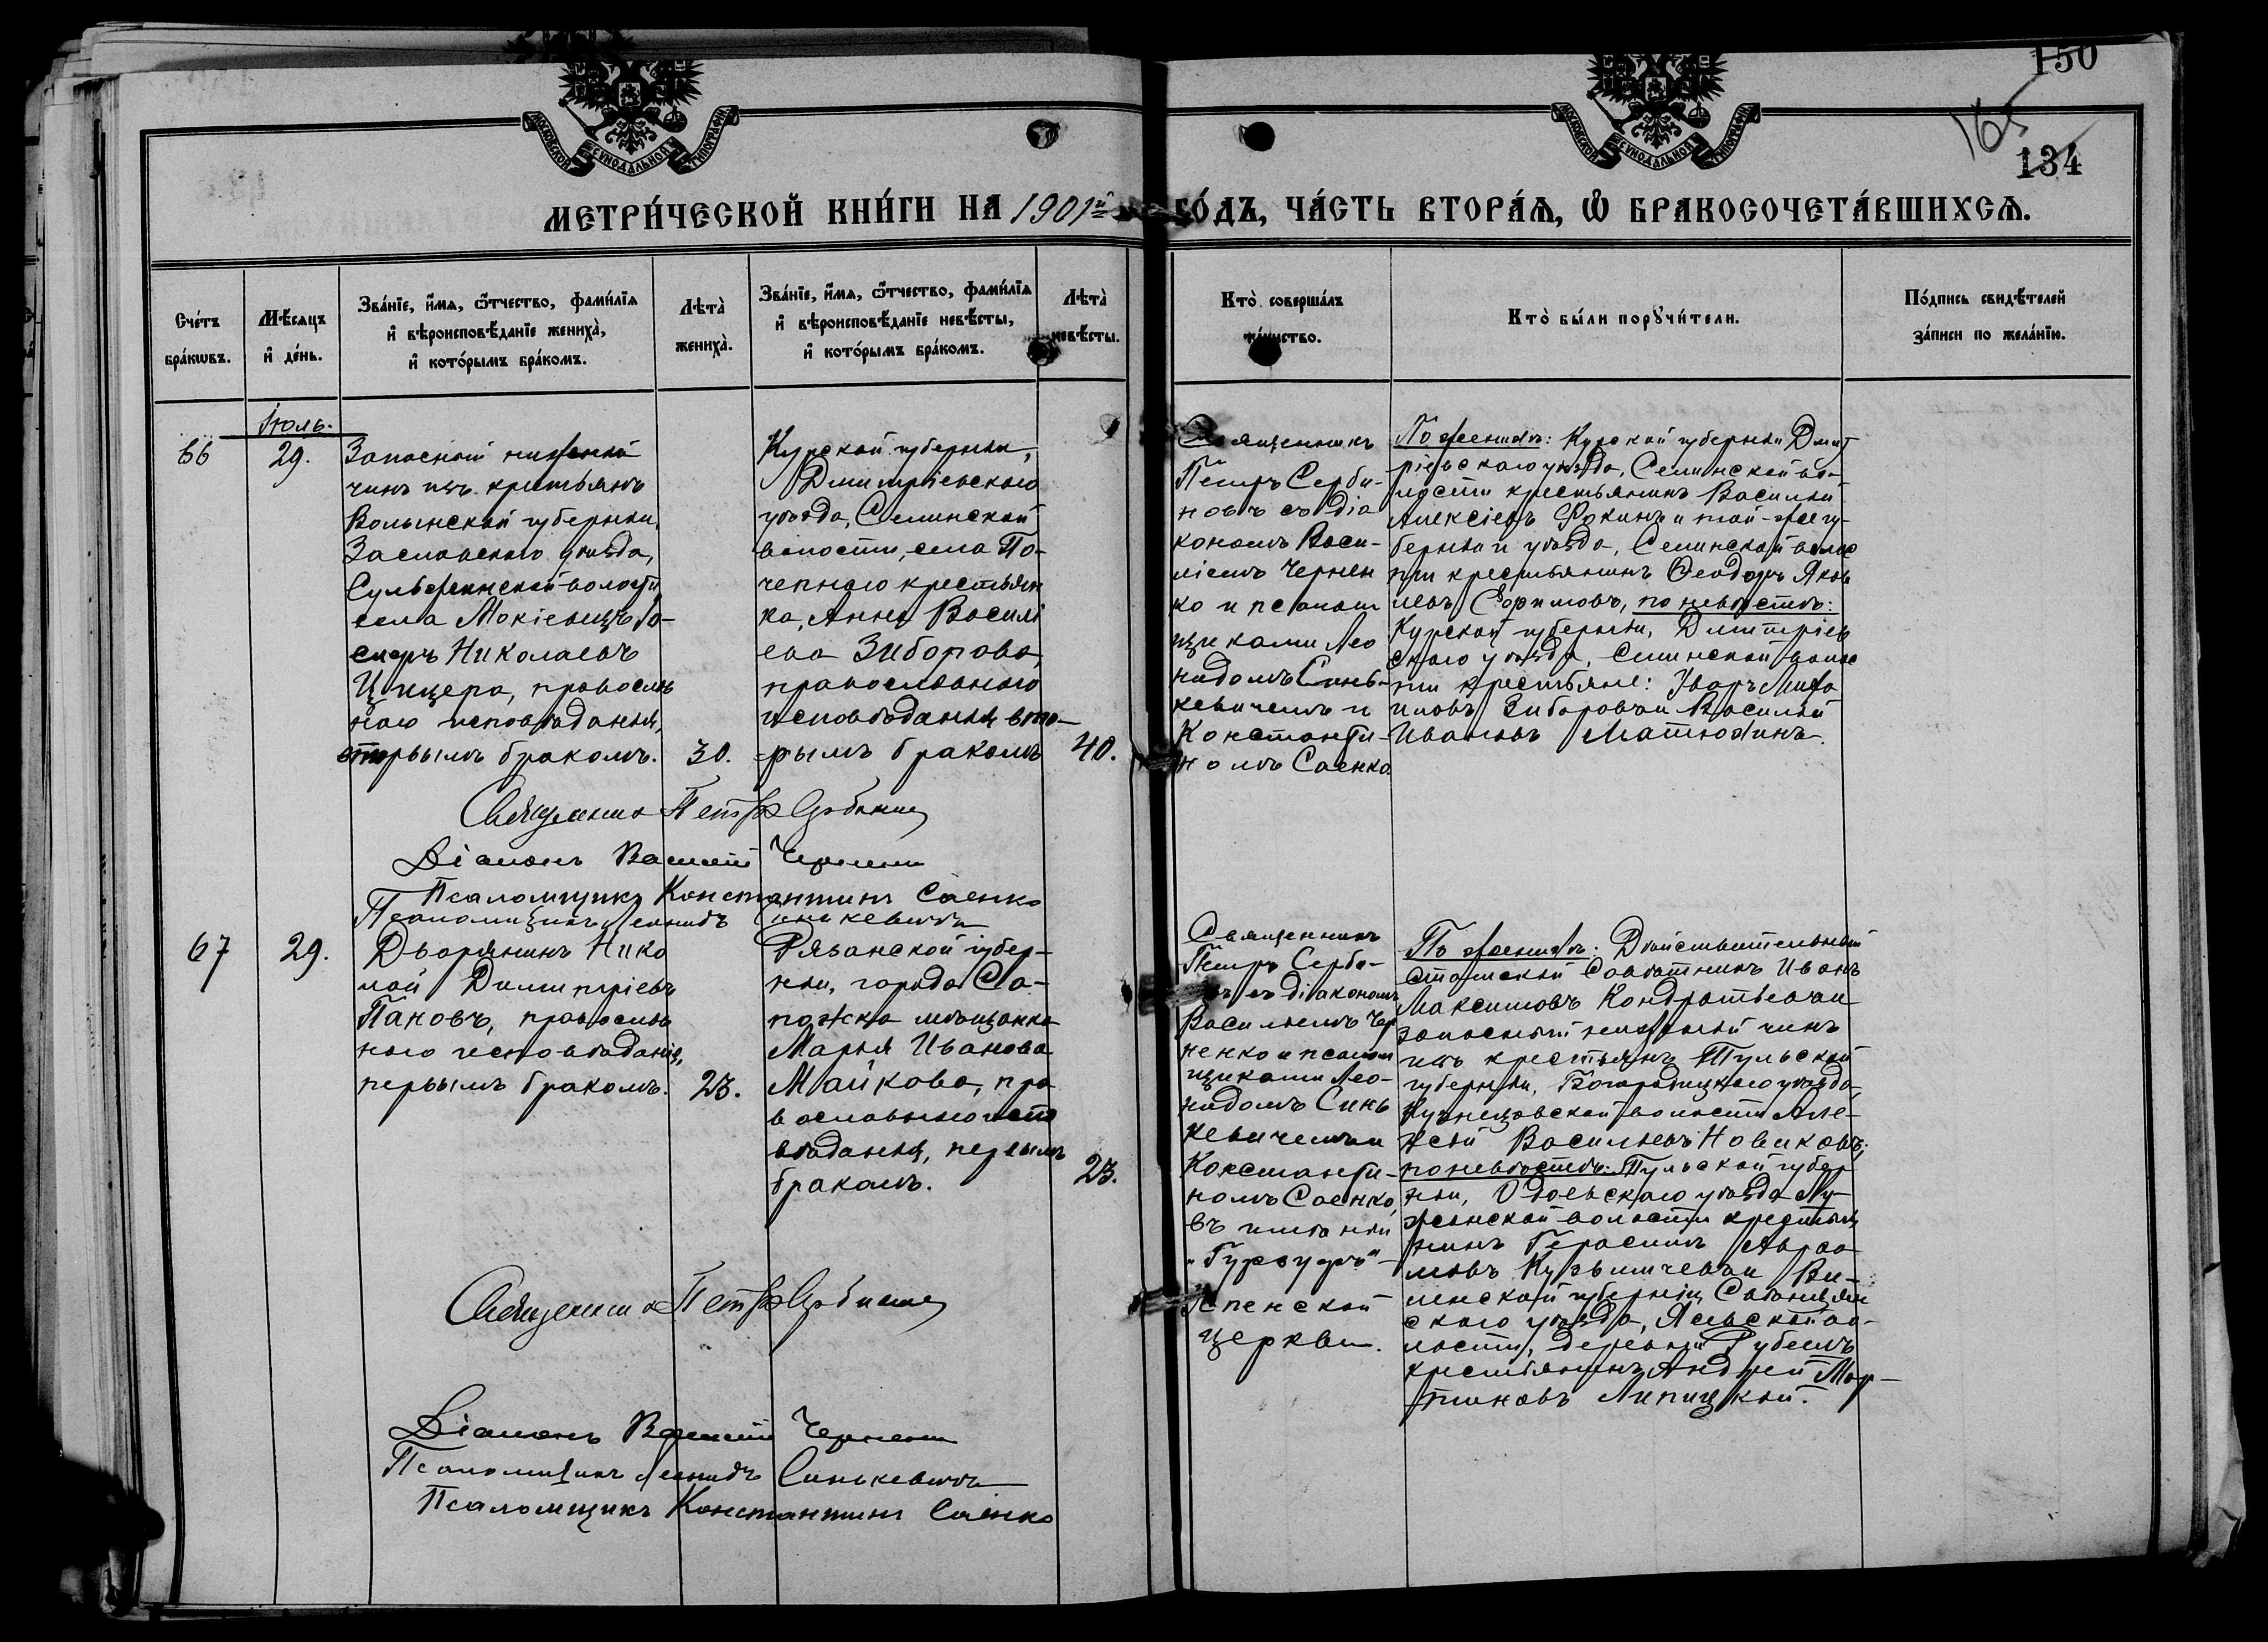 150
165
134
МОСКОВСКОЙ СѴНОДАЛЬНОЙ ТИПОГРАФІИ
МОСКОВСКОЙ СѴНОДАЛЬНОЙ ТИПОГРАФІИ
МЕТРИ́ЧЕСКОЙ КНИ́ГИ НА 1901й ГО́ДЪ, ЧА́СТЬ ВТОРА́Ѧ, Ѽ БРАКОСОЧЕТА́ВШИХСѦ.
Сче́тъ
бра́кѡвъ.
Мѣ́сѧцъ
и҆ де́нь.
Зва́нїе, и҆́мѧ, ѻ҆́тчество, фами́лїѧ
и҆ вѣроисповѣ́данїе жениха̀,
и҆ кото́рымъ бра́комъ.
Лѣта̀
жениха̀.
Зва́нїе, и҆́мѧ, ѻ҆́тчество, фами́лїѧ
и҆ вѣроисповѣ́данїе невѣ́сты,
и҆ кото́рымъ бра́комъ.
Лѣта̀
невѣ́сты.
Кто̀ соверша́лъ
та́инство.
Кто̀ бы́ли порꙋчи́тели.
По́дпись свидѣ́телей
за́писи по жела́нїю.
Іюль.
66
29.
Запасной нижній
чинъ изъ крестьянъ
Волынской губерніи,
Заславскаго уѣзда,
Сульжинской волости
села Мокіевецъ Іо-
сифъ Николаевъ
Цицера, православ
наго исповѣданія,
первымъ бракомъ.
30.
Курской губерніи,
Дмитріевскаго
уѣзда, Селинской
волости, села По-
чепнаго крестьян
ка, Анна Василі
ева Зиборова,
православнаго
исповѣданія вто-
рымъ бракомъ
40.
Священникъ
Петръ Серби-
новъ съ діа
кономъ Васи-
ліемъ Чернен
ко и псалом
щиками Лео
нидомъ Синь-
кевичемъ и
Константи-
номъ Саенко.
По женихѣ: Курской губерніи Дмит
ріевскаго уѣзда, Селинской во-
лости крестьянинъ Василій
Алексіевъ Фокинъ и той-же гу-
берніи и уѣзда, Селинской волос
ти крестьянинъ Ѳеодоръ Яков
левъ Ефимовъ, по невѣстѣ:
Курской губерніи, Дмитріев
скаго уѣзда, Селинской волос
ти крестьяне: Уваръ Миха
иловъ Зиборовъ и Василій
Ивановъ Матюхинъ.
Священникъ Петръ Сербиновъ
Діаконъ Василій Черненко
Псаломщикъ Константинъ Саенко
Псаломщикъ Леонидъ Синькевичъ
67
29.
Дворянинъ Нико
лай Димитріевъ
Пановъ, православ
наго исповѣданія,
первымъ бракомъ.
23.
Рязанской губер-
ніи, города Са-
пожка мѣщанка
Марія Иванова
Майкова, пра
вославнаго испо
вѣданія, первымъ
бракомъ.
23.
Священникъ
Петръ Серби-
въ съ діакономъ
Василіемъ Чер
ненко и псалом
щиками Лео-
нидомъ Синь
кевичемъ и
Константи-
номъ Саенко,
въ имѣніи
"Гурзуфъ"
Успенской
церкви.
По женихѣ: Дѣйствительный
Статскій Совѣтникъ Иванъ
Максимовъ Кондратьевъ и
запасный нижній чинъ
изъ крестьянъ Тульской
губерніи, Богородицкаго уѣзда,
Кузнецовской волости Але-
ксѣй Васильевъ Новиковъ;
по невѣстѣ: Тульской губер
ніи, Одоевскаго уѣзда Лу-
жинской волости крестья
нинъ Герасимъ Авраа
мовъ Кузьмичевъ и Ви-
ленской губерніи, Свѣнцян
скаго уѣзда, Ясевской во-
лости, деревни Рубель
крестьянинъ Андрей Мар-
тиновъ Липицкій.
Священникъ Петръ Сербиновъ
Діаконъ Василій Черненко
Псаломщикъ Леонидъ Синькевичъ
Псаломщикъ Константинъ Саенко